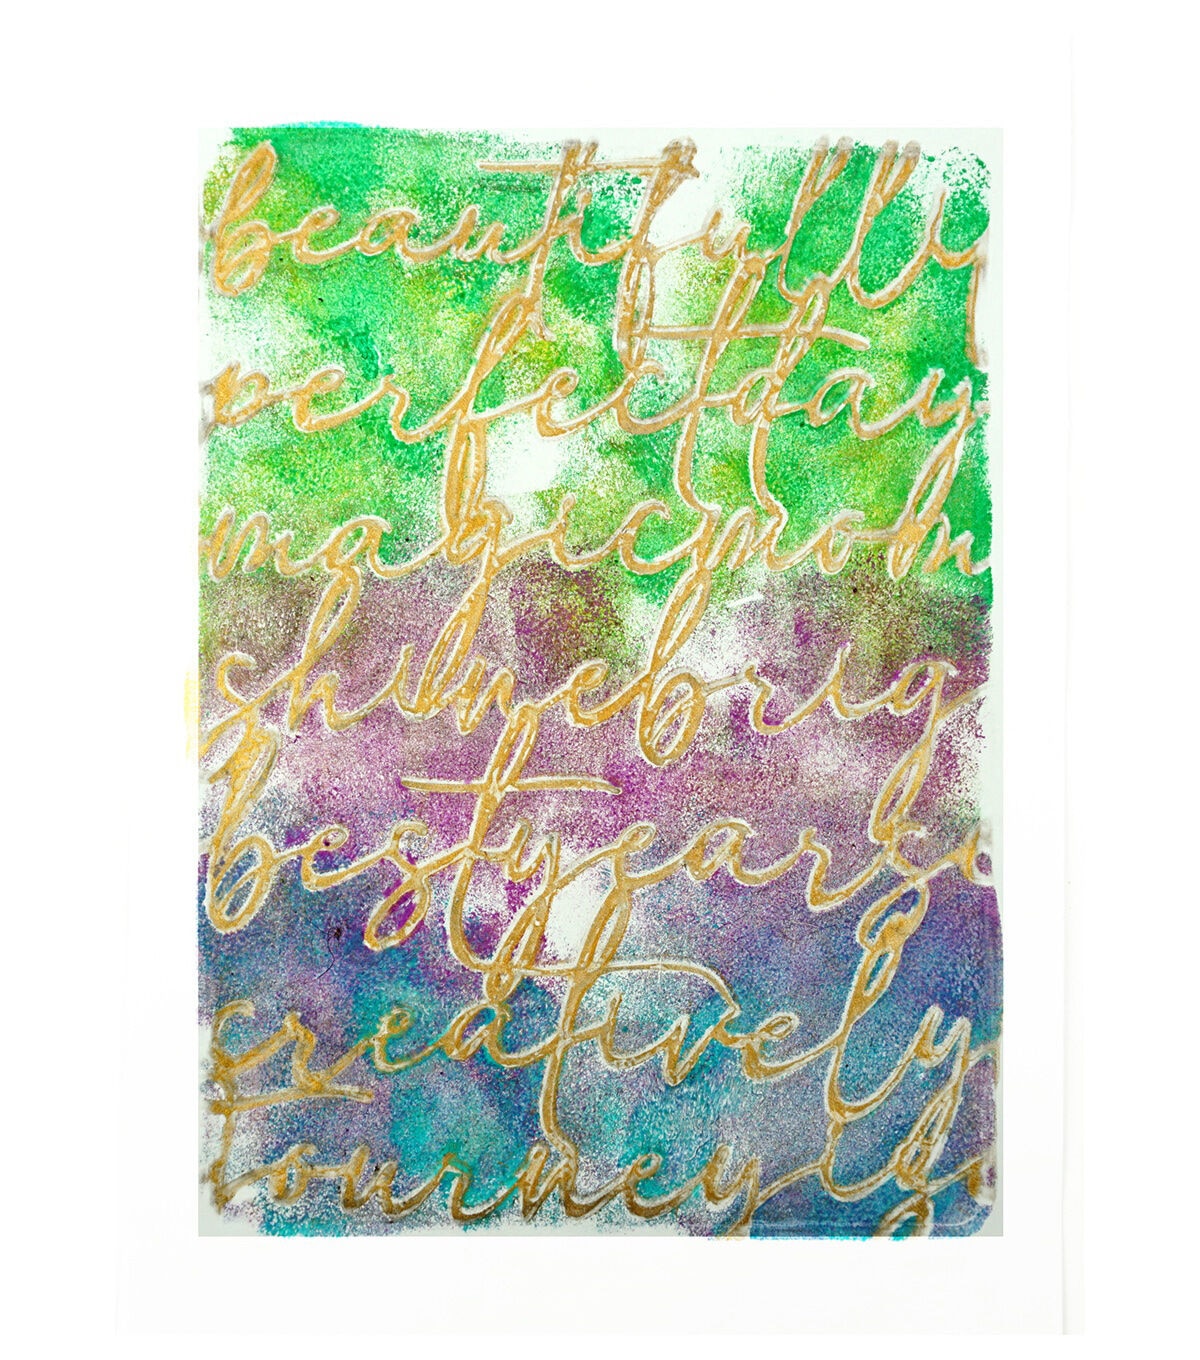 beautifully
perfectday
magicmom
shinebrig
bestyear
creatively
Journey